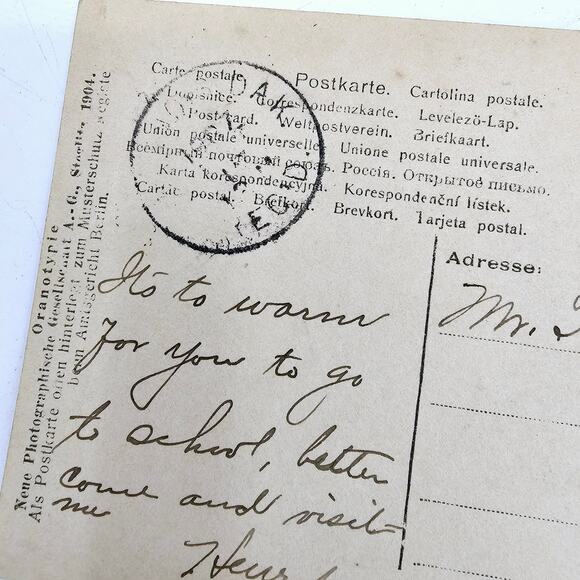 Carte postale. Postkarte. Cartolina postale.
Dopisnice. Correspondenzkarte. Levelező-Lap.
Post card. Weltpostverein. Briefkaart.
Union postale universelle. Unione postale universale.
Всемірный почтовый союзъ. Россія. Открытое письмо.
Karta korespondencyjna. Korespondenční lístek.
Cartãc postal. Brefkort. Brevkort. Tarjeta postal.
DAK.
REC'D
Adresse:
Mr.
Its to warm
for you to go
to school, better
come and visit
me
Neue Photographische Gesellschaft A.-G., Steglitz 1904.
Oranotypie
Als Postkarte offen hinterlegt zum Musterschutz-Register
beim Amtsgericht Berlin.